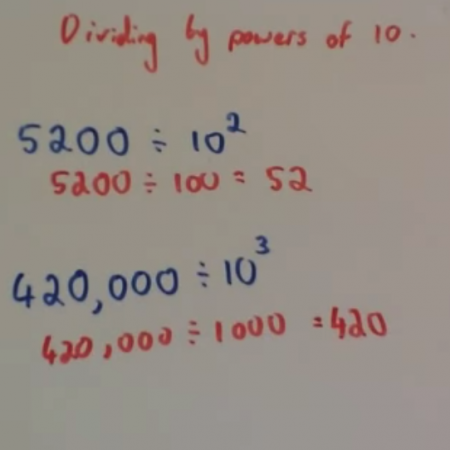 Dividing by powers of 10.
5200 ÷ 10²
5200 ÷ 100 = 52
420,000 ÷ 10³
420,000 ÷ 1000 = 420